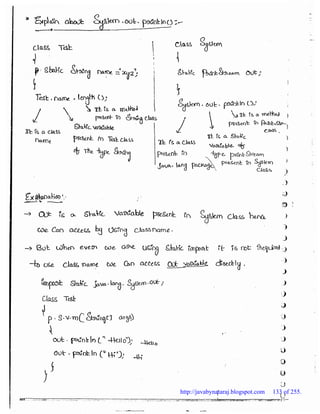 * Explain about System.out.println();:-
class Test
{
p static String name="xyz";
}
Test.name.length();
It is a class name
It is a method present in String class
Static variable present in Test class of the type String
class System
{
static PrintStream out;
}
System.out.println();
It is a class present in java.lang package
It is a static variable of type PrintStream present in System class
It is a method present in PrintStream class.
Explanation:
→ Out is a static variable present in System class hence
we can access by using classname.
→ But when ever we are using static import it is not required
to use class name we can access out variable directly.
import static java.lang.System.out;
class Test
{
p.s.v.m(String[] args)
{
out.println("Hello"); Hello
out.println("Hi"); Hi
}
}
http://javabynataraj.blogspot.com 133 of 255.